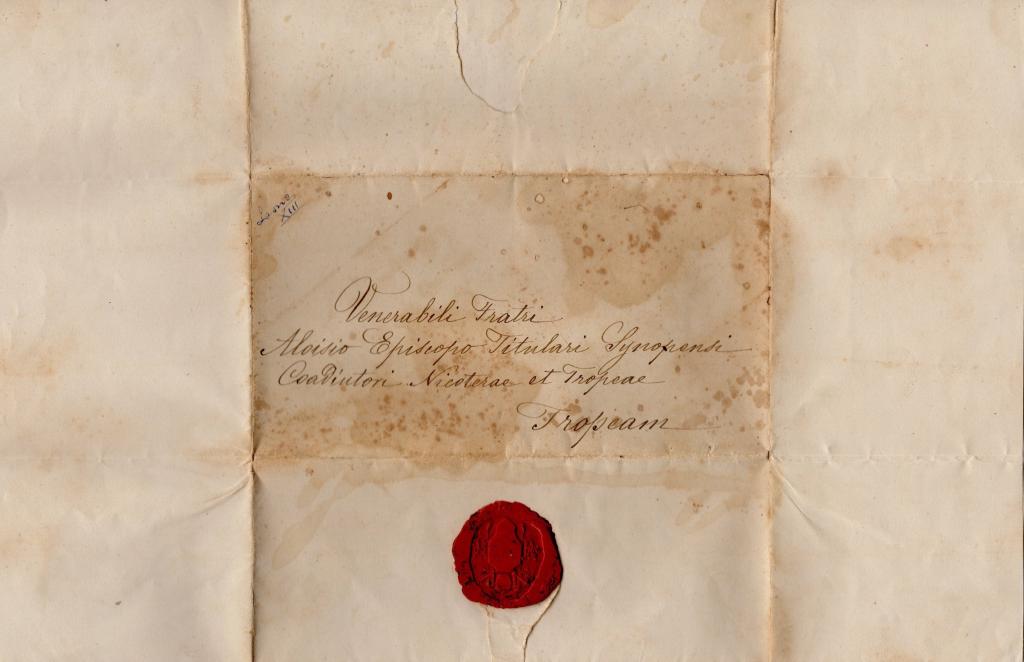 Leone
XIII
Venerabili Fratri
Aloisio Episcopo Titulari Synopensi
Coadiutori Nicoterae et Tropeae
Tropeam